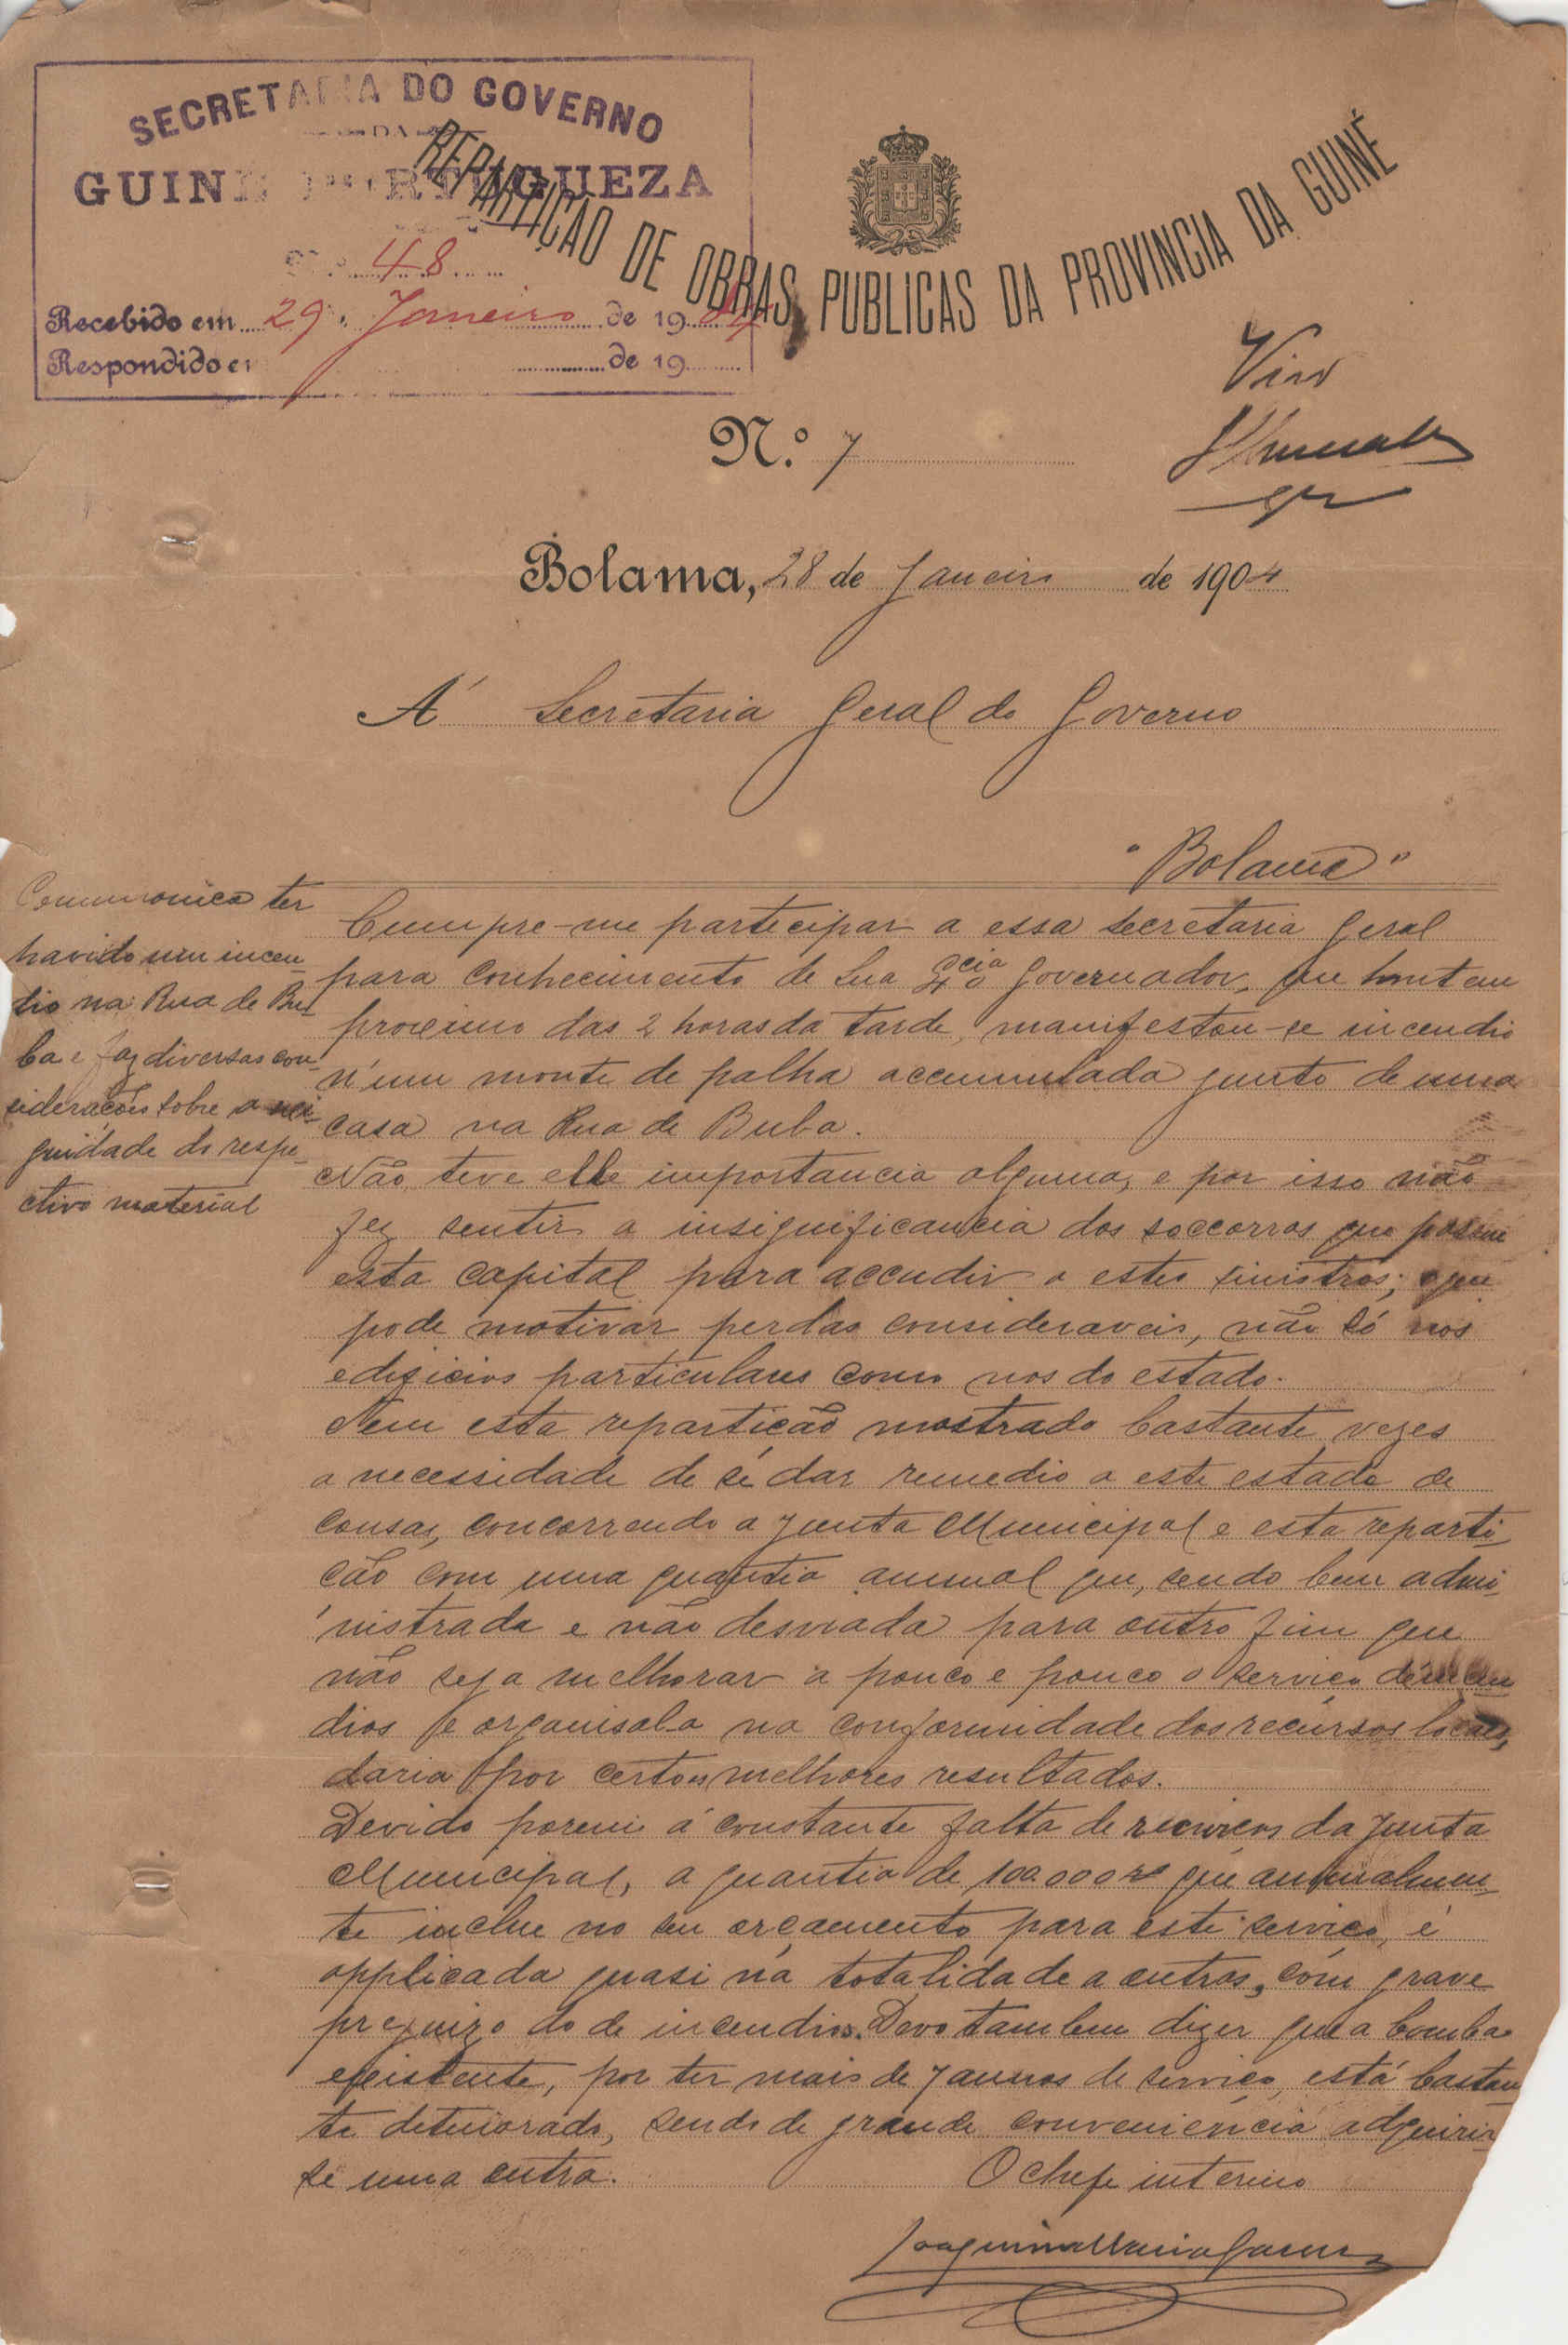 SECRETARIA DO GOVERNO
DA
GUINÉ PORTUGUEZA
N.º 48
Recebido em 29 Janeiro de 1904
Respondido em de 19
REPARTIÇÃO DE OBRAS PUBLICAS DA PROVINCIA DA GUINÉ
Visto
N.º 7
Bolama, 28 de Janeiro de 1904
Á Secretaria Geral do Governo
"Bolama"
Communica ter
havido um incen-
dio na Rua de Bu-
ba e faz diversas con-
siderações sobre a exi-
guidade do respe-
ctivo material
Cumpre-me participar a essa Secretaria Geral
para conhecimento de Sua Ex.cia o Governador, que hontem
proximo das 2 horas da tarde, manifestou-se incendio
n'um monte de palha accumulada junto de uma
casa na Rua de Buba.
Não teve elle importancia alguma, e por isso não
fez sentir a insignificancia dos soccorros que possue
esta capital para accudir a estes sinistros; o que
pode motivar perdas consideraveis, não só nos
edificios particulares como nos do estado.
Tem esta repartição mostrado bastante vezes
a necessidade de se dar remedio a este estado de
cousas, concorrendo a Junta Municipal e esta reparti-
ção com uma quantia annual que, sendo bem admi-
nistrada e não desviada para outro fim que
não seja melhorar a pouco e pouco o serviço de incen-
dios e organisal-o na conformidade dos recursos locaes,
daria por certo melhores resultados.
Devido porem á constante falta de recursos da Junta
Municipal, a quantia de 100.000 rs que annualmen-
te inclue no seu orçamento para este serviço, é
applicada quasi na totalidade a outros, com grave
prejuizo do de incendios. Devo tambem dizer que a bomba
existente, por ter mais de 7 annos de serviço, está bastan-
te deteriorada, sendo de grande conveniencia adquirir-
se uma outra.
O chefe interino
Joaquim Maria